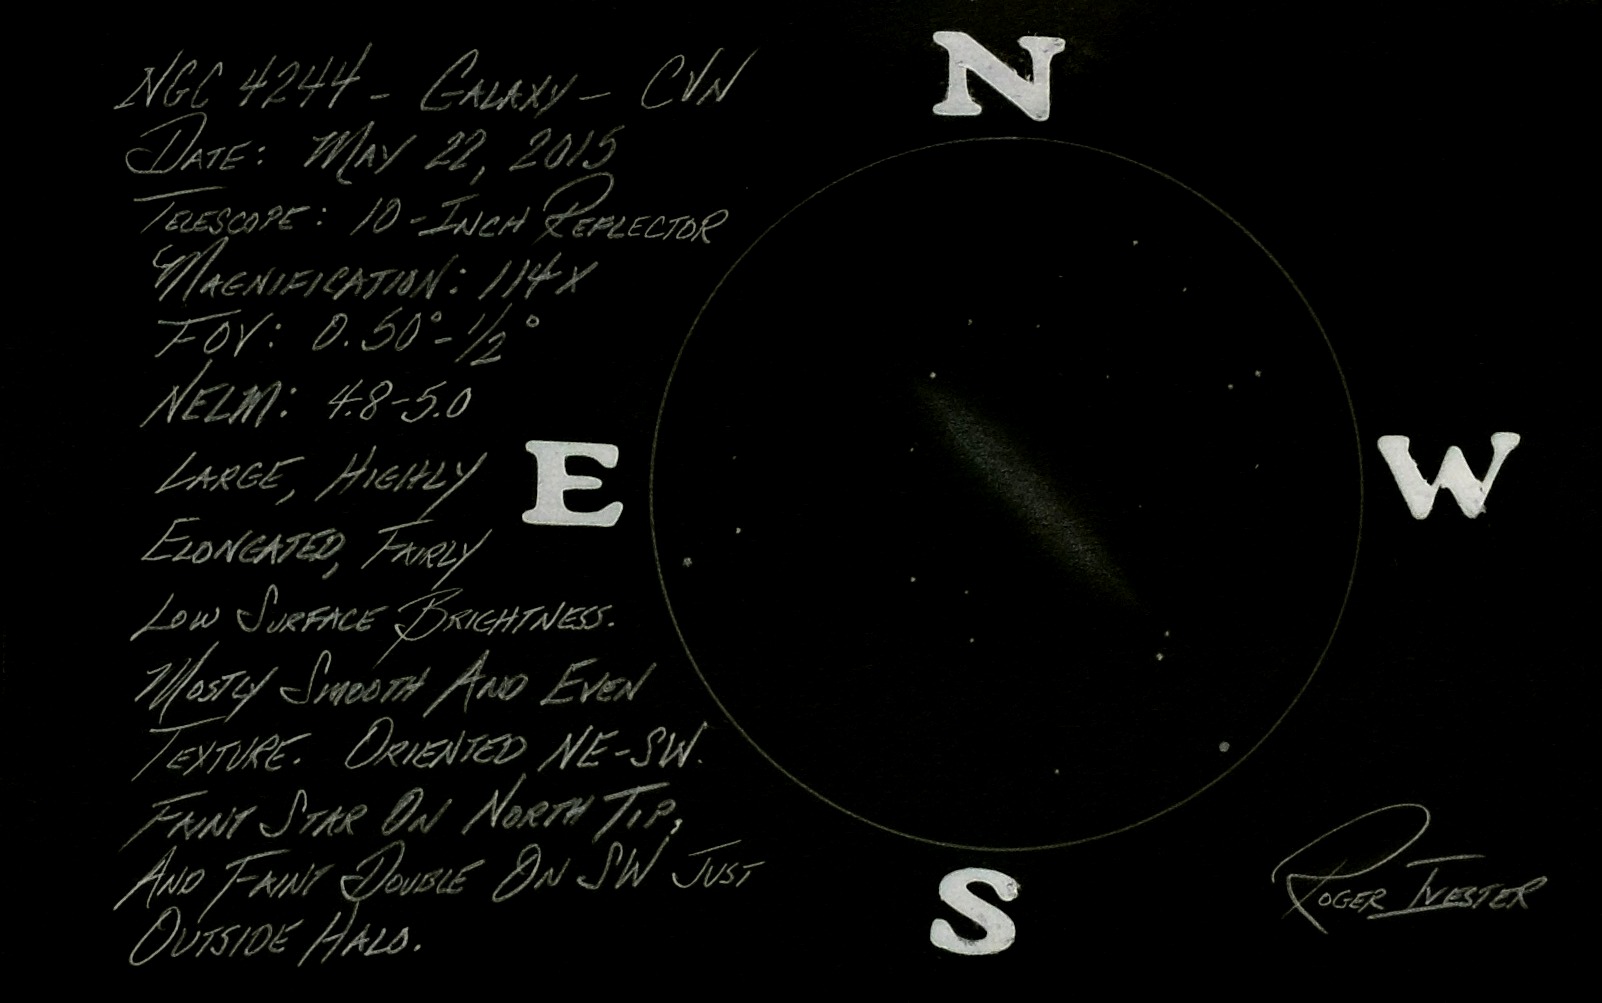 NGC 4244 - GALAXY - CVN
DATE: MAY 22, 2015
TELESCOPE: 10-INCH REFLECTOR
MAGNIFICATION: 114X
FOV: 0.50° - 1/2°
NELM: 4.8-5.0
LARGE, HIGHLY
ELONGATED, FAIRLY
LOW SURFACE BRIGHTNESS.
MOSTLY SMOOTH AND EVEN
TEXTURE. ORIENTED NE-SW.
FAINT STAR ON NORTH TIP,
AND FAINT DOUBLE ON SW JUST
OUTSIDE HALO.
N
E
W
S
ROGER IVESTER